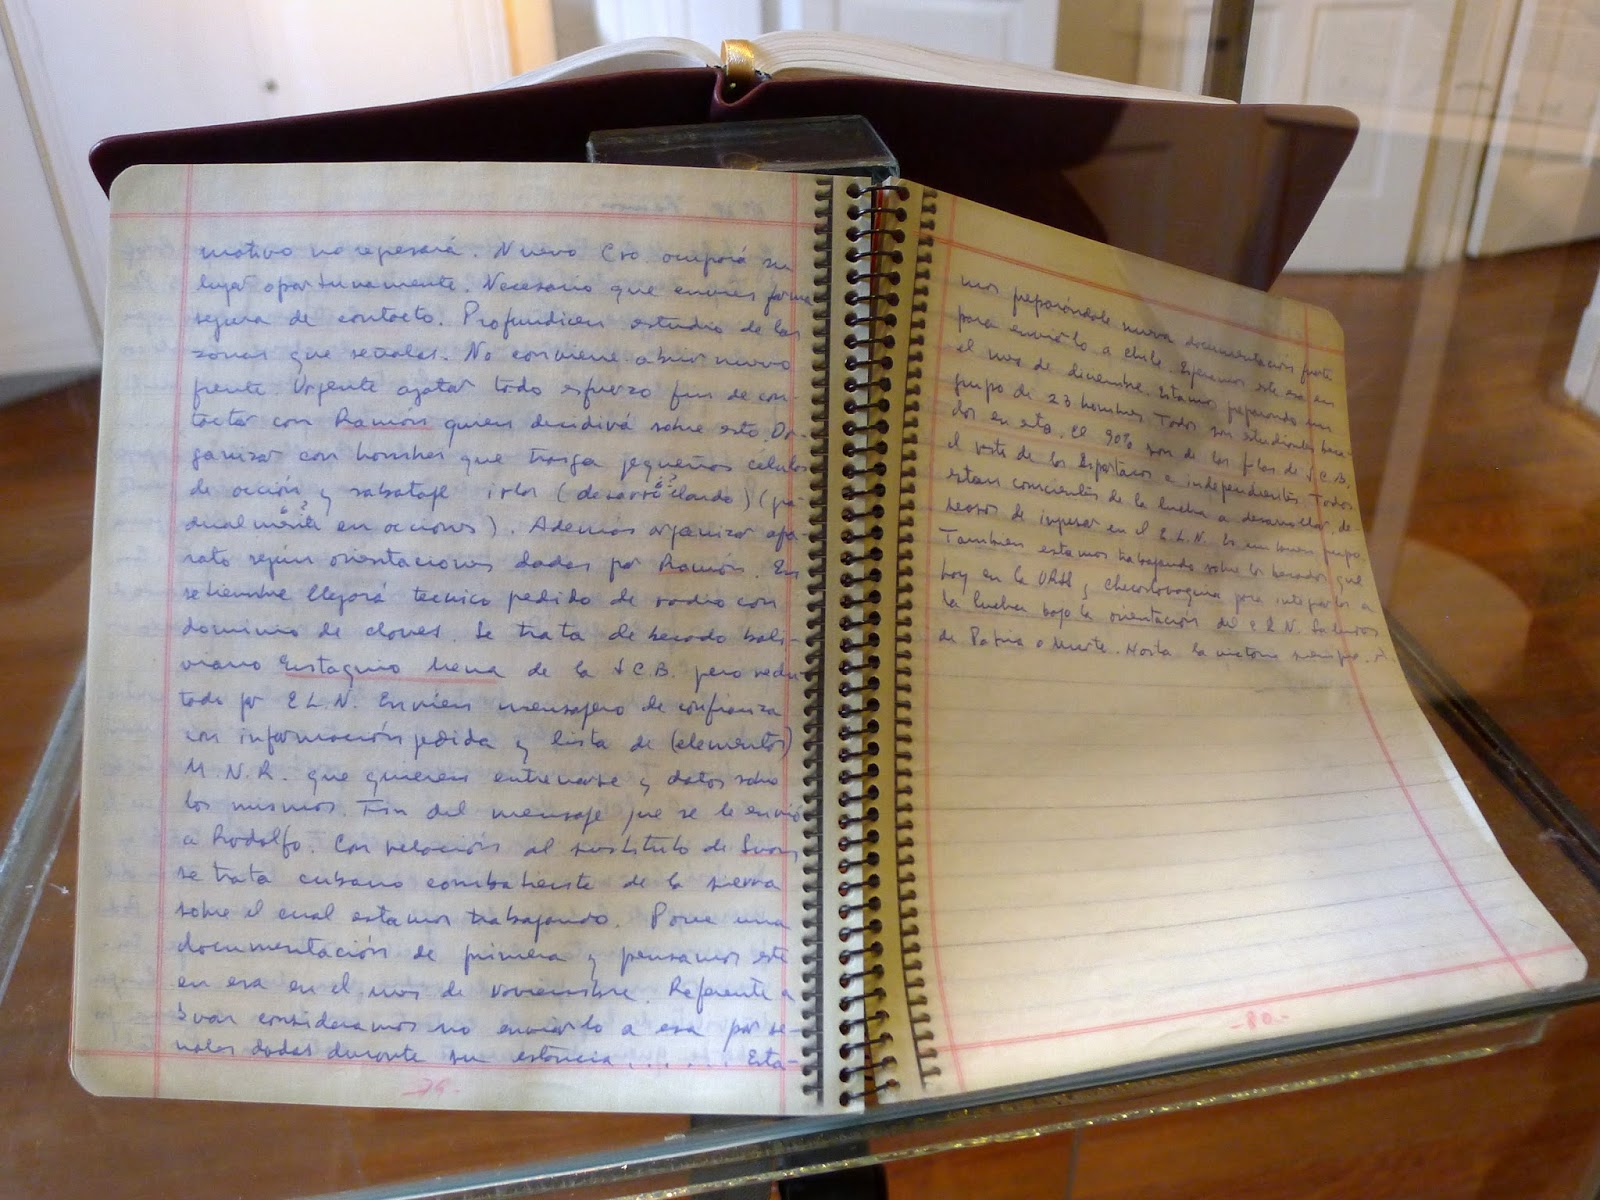 motivo no regresará. Nuevo Cro. ocupará su
lugar oportunamente. Necesario que envies forma
segura de contacto. Profundicen estudio de las
zonas que señalas. No conviene abrir nuevo
frente. Urgente agotar todo esfuerzo fin de con-
tactar con Ramón quien decidirá sobre esto. Or-
ganizar con hombres que traiga pequeños células
de acción y sabotaje irlos (desarrollando) (gra-
dualmente en acciones). Además organizar apa-
rato según orientaciones dadas por Ramón. En
setiembre llegará tecnico pedido de radio con
dominio de claves. Se trata de becado boli-
viano Eustaquio Mena de la J.C.B. pero reclu-
tado por E.L.N. Envien mensajero de confianza
con información pedida y lista de (elementos)
M.N.R. que quieren entrenarse y datos sobre
los mismos. Fin del mensaje que se le envió
a Rodolfo. Con relación al sustituto de Ivan
se trata cubano combatiente de la sierra
sobre el cual estamos trabajando. Posee una
documentación de primera y pensamos esté
en esa en el mes de noviembre. Referente a
Ivan consideramos no enviarlo a esa por se-
ñales dadas durante su estancia...... Esta-
-79-
mos preparándole nueva documentación fuerte
para enviarlo a Chile. Esperemos este esa en
el mes de diciembre. Estamos preparando un
grupo de 23 hombres. Todos son estudiantes beca-
dos en esta. El 90% son de las filas de J.C.B.
el resto de los Espartacos e independientes. Todos
estan conscientes de la lucha a desarrollar, de-
seosos de ingresar en el E.L.N. Es un buen grupo.
Tambien estamos trabajando sobre los becados que
hay en la URSS y Checoslovaquia para integrarlos a
la lucha bajo la orientación del E.L.N. Saludos
de Patria o Muerte. Hasta la victoria siempre.
-80-